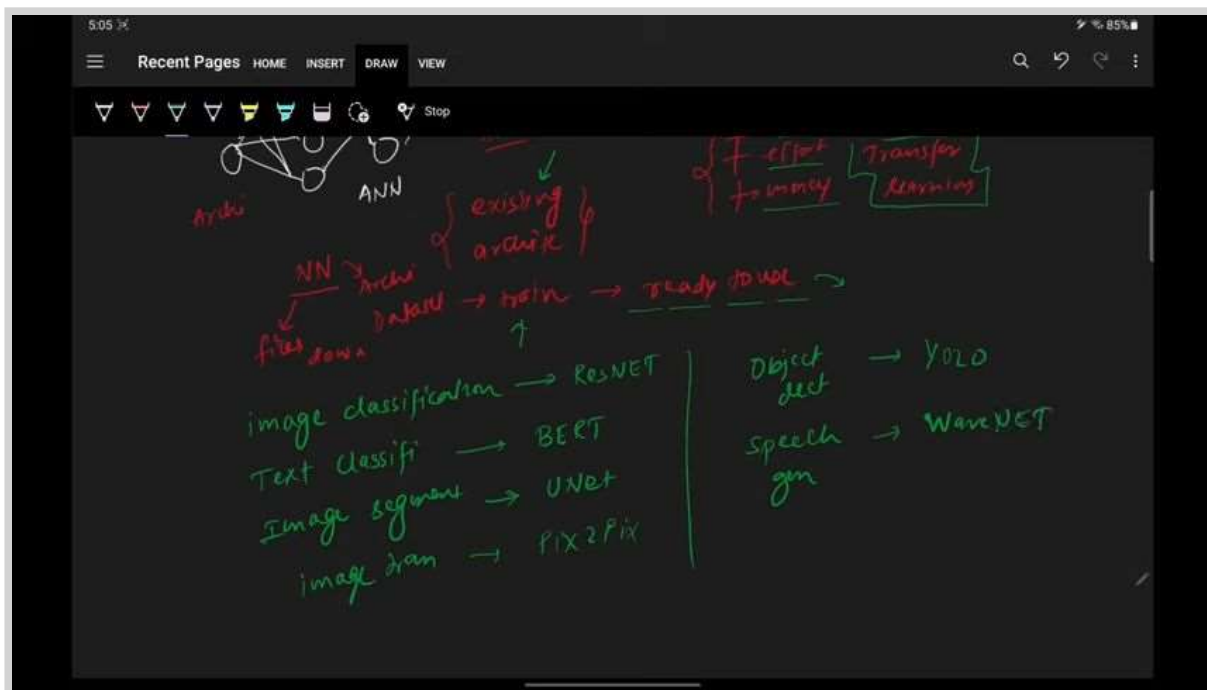 5:05
85%
Recent Pages HOME INSERT DRAW VIEW
Stop
ANN
Archi
existing
archite
effort
money
Transfer
learning
NN → Archi
files down
Dataset → train → ready to use →
image classification → ResNET
Text classifi → BERT
Image segment → UNet
image tran → Pix2Pix
Object → YOLO
dect
speech → WaveNET
gen